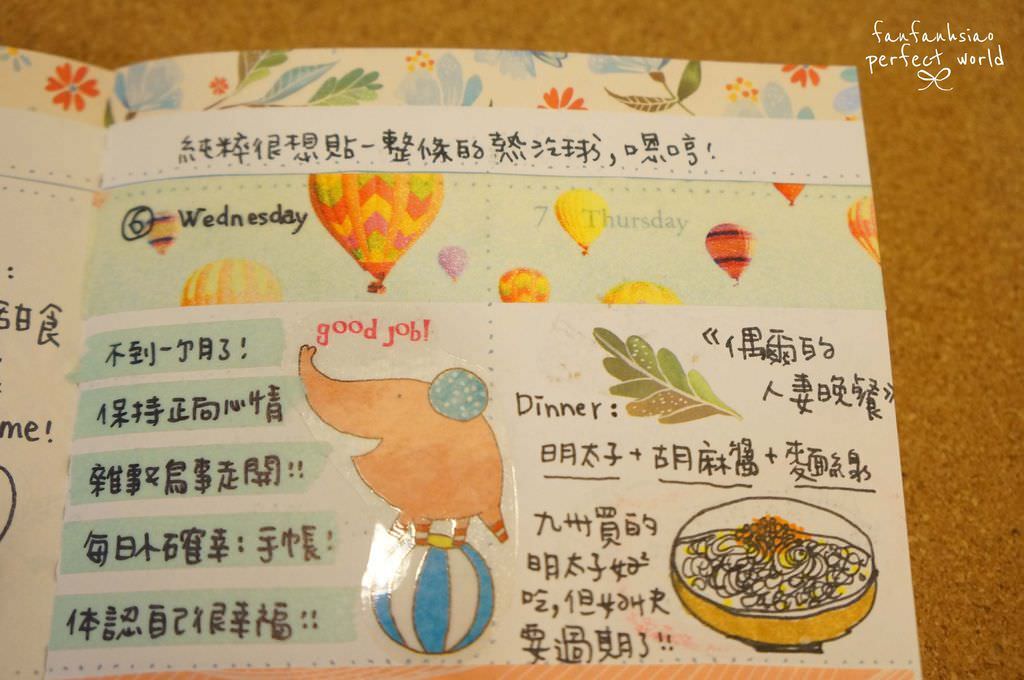 fanfanhsiao
perfect world
純粹很想貼一整條的熱汽球,嗯哼!
6 Wednesday
7 Thursday
甜食
me!
good job!
不到一个月了!
保持正向心情
雜事&鳥事走開!!
每日小確幸:手帳!
体認自己很幸福!!
《偶爾的
人妻晚餐
Dinner:
明太子+胡麻醬+麵線
九州買的
明太子好好
吃,但好快
要過期了!!